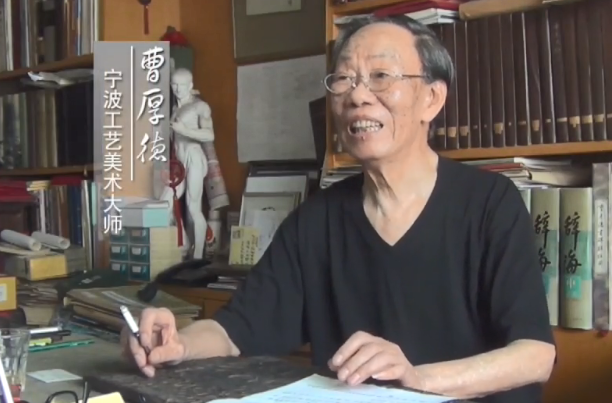 曹厚德
宁波工艺美术大师
辞海
辞海
中